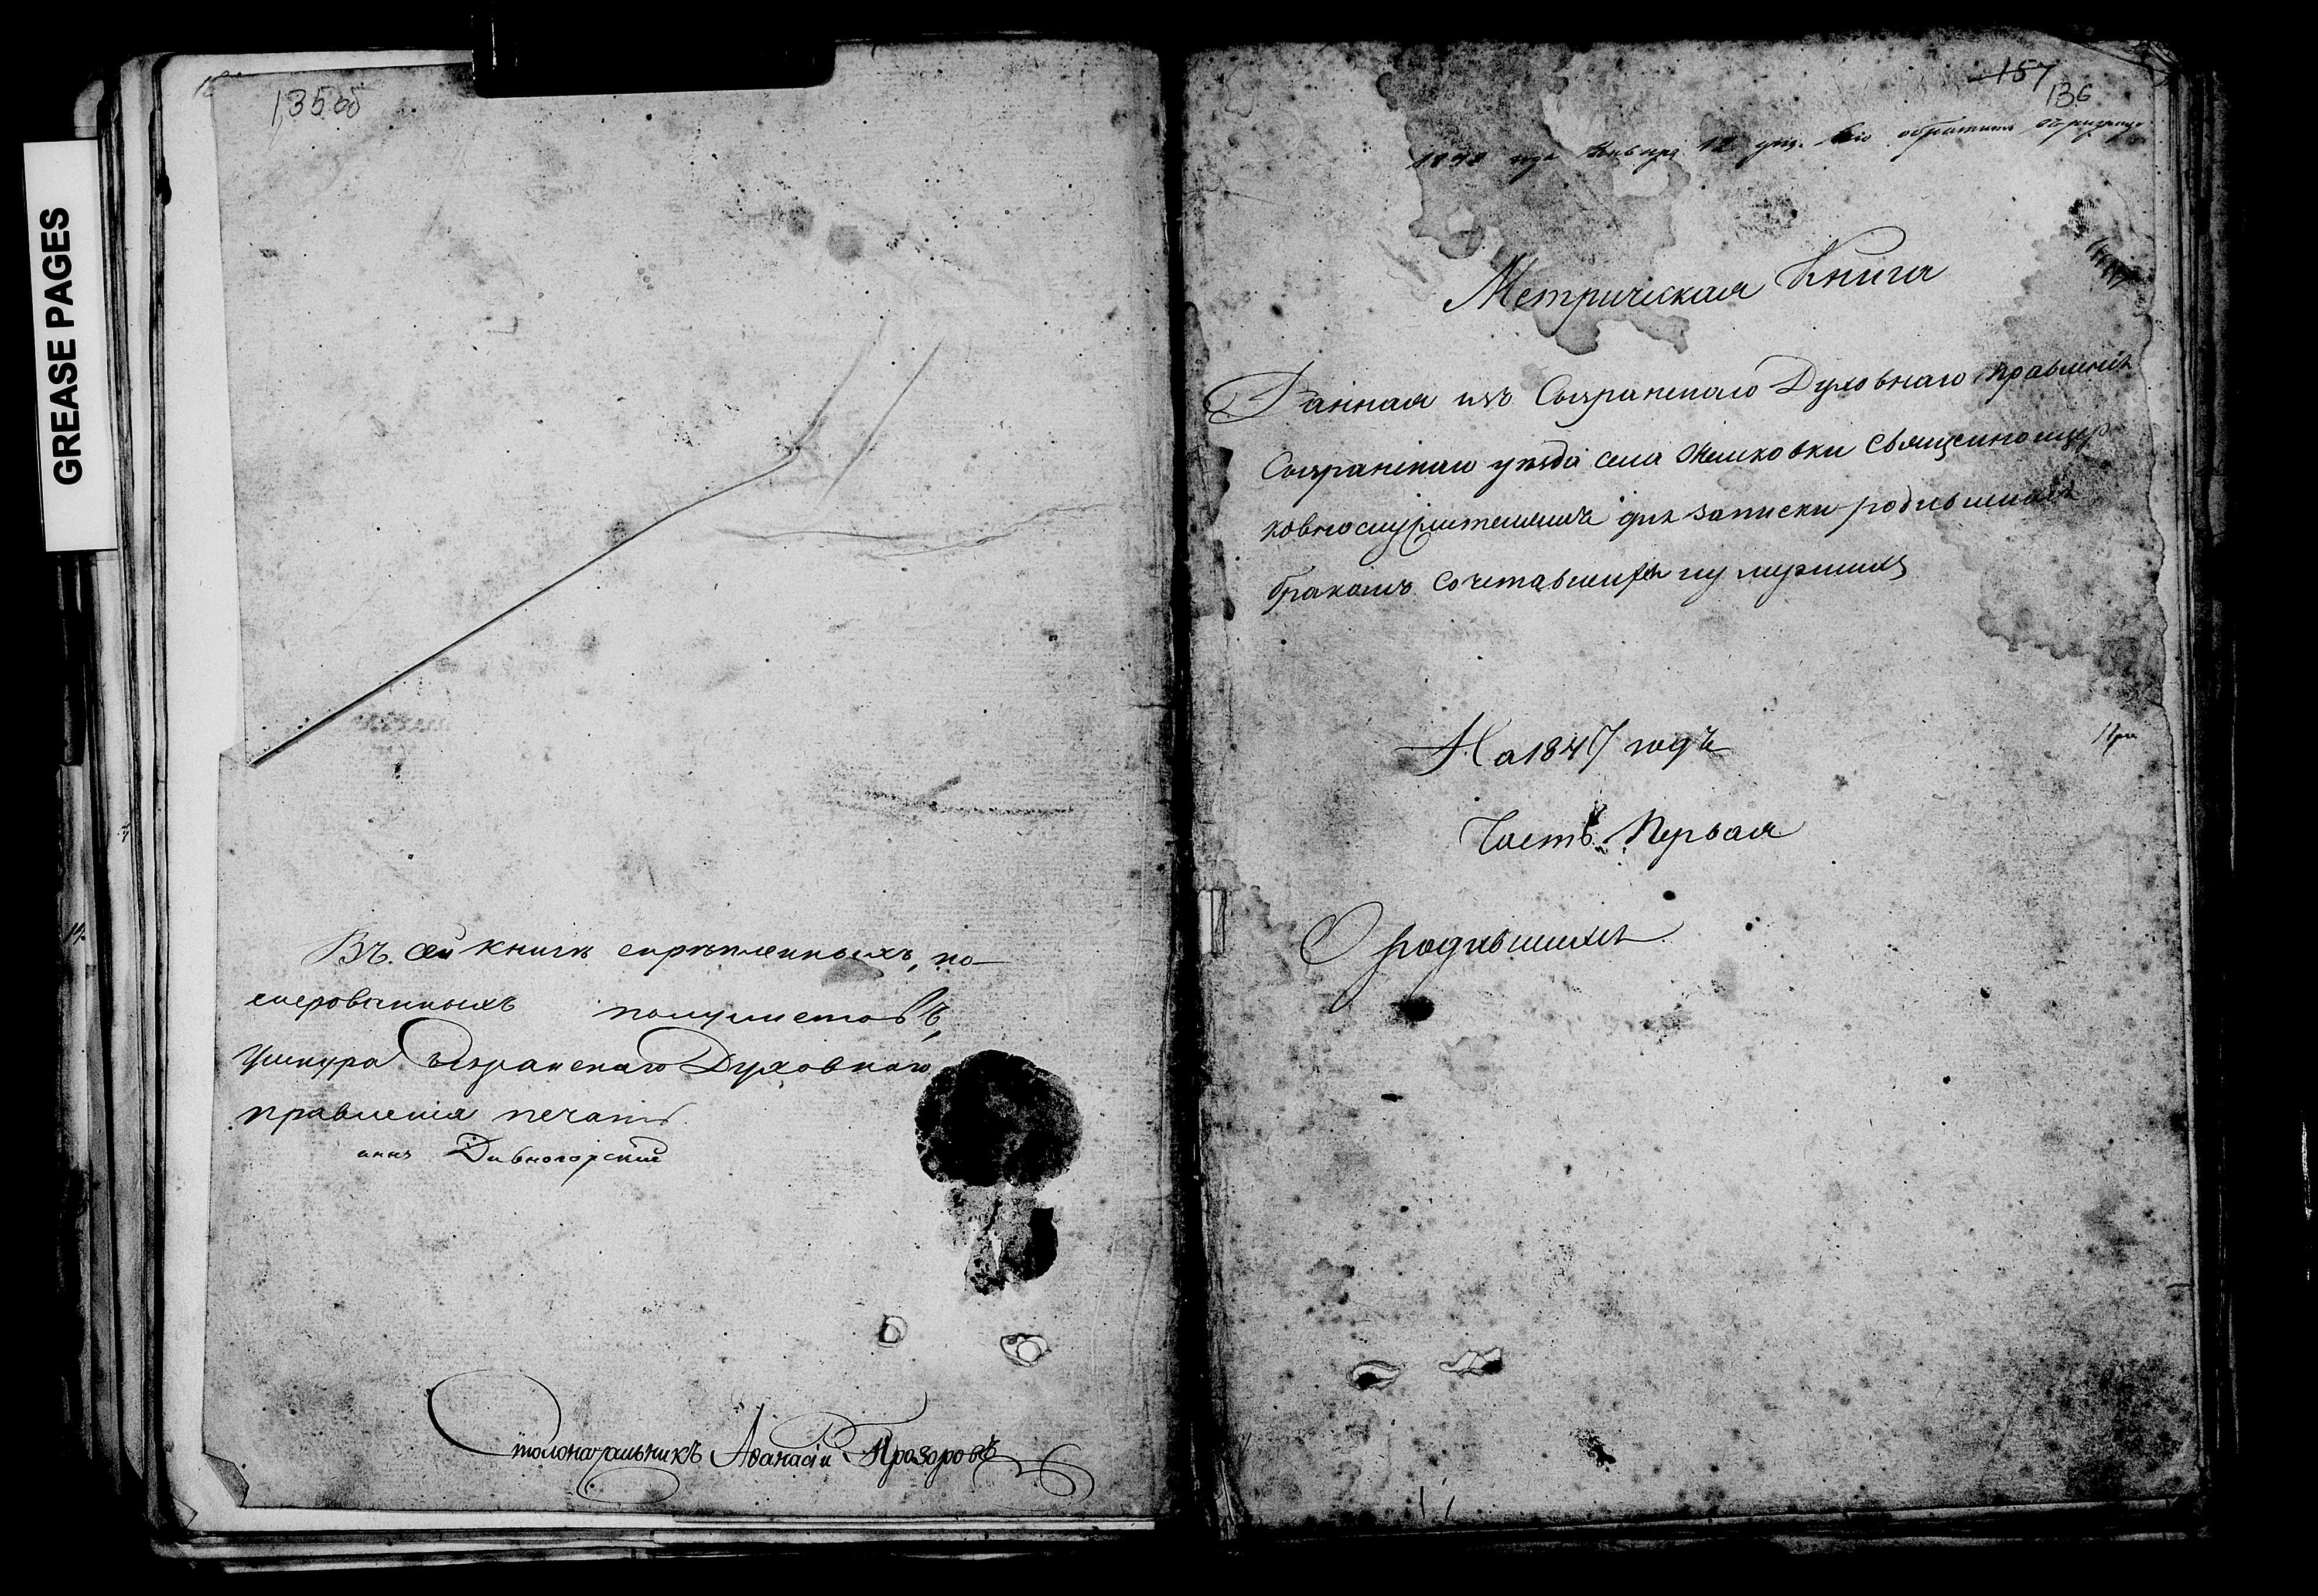 GREASE PAGES
135об
Въ сей книгѣ скрѣпленныхъ, но-
мерованныхъ полулистовъ,
У шнура Сызранскаго Духовнаго
правленія печать
Дивногорскій
Столоначальникъ Аѳанасій Прозоровъ
157
136
Января 12 дня. обратить
Метрическая Книга
Данная изъ Сызранскаго Духовнаго правленія
Сызранскаго уѣзда села священноцер
ковнослужителямъ для записки родившихся
бракомъ сочетавшихся и умершихъ
На 1847 годъ
Часть Первая
О родившихся